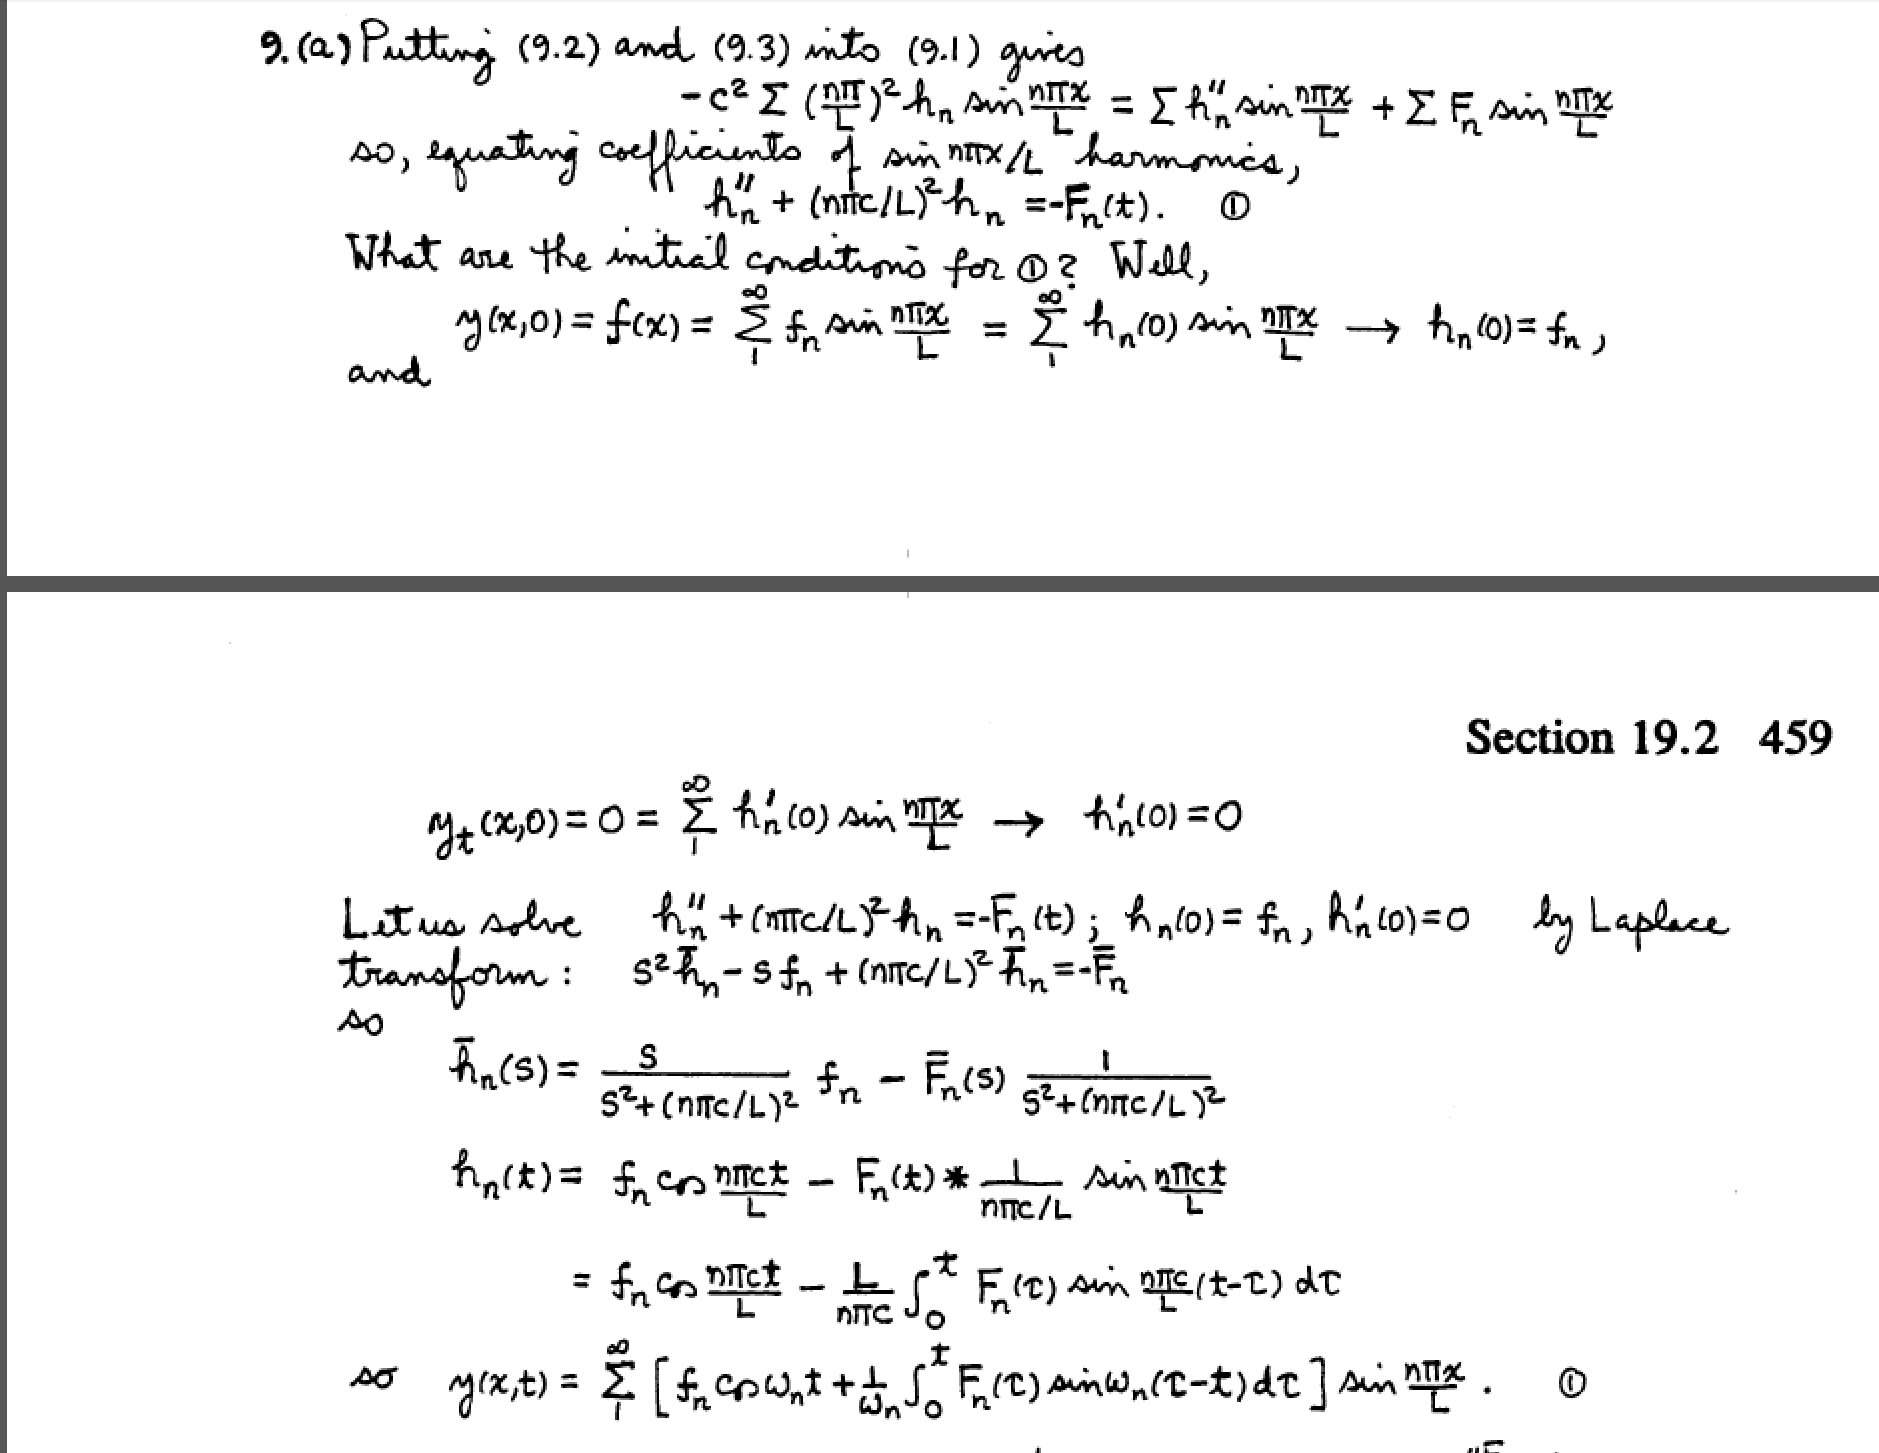 9. (a) Putting (9.2) and (9.3) into (9.1) gives
-c² Σ (nπ/L)² hₙ sin nπx/L = Σ hₙ'' sin nπx/L + Σ Fₙ sin nπx/L
so, equating coefficients of sin nπx/L harmonics,
hₙ'' + (nπc/L)² hₙ = -Fₙ(t). ①
What are the initial conditions for ①? Well,
y(x,0) = f(x) = Σ₁^∞ fₙ sin nπx/L = Σ₁^∞ hₙ(0) sin nπx/L → hₙ(0) = fₙ,
and
Section 19.2 459
yₜ(x,0) = 0 = Σ₁^∞ hₙ'(0) sin nπx/L → hₙ'(0) = 0
Let us solve hₙ'' + (nπc/L)² hₙ = -Fₙ(t); hₙ(0) = fₙ, hₙ'(0) = 0 by Laplace
transform: s² h̄ₙ - s fₙ + (nπc/L)² h̄ₙ = -F̄ₙ
so
h̄ₙ(s) = s/(s² + (nπc/L)²) fₙ - F̄ₙ(s) 1/(s² + (nπc/L)²)
hₙ(t) = fₙ cos nπct/L - Fₙ(t) * 1/(nπc/L) sin nπct/L
= fₙ cos nπct/L - L/nπc ∫₀ᵗ Fₙ(τ) sin nπc/L (t-τ) dτ
so y(x,t) = Σ₁^∞ [fₙ cos ωₙt + 1/ωₙ ∫₀ᵗ Fₙ(τ) sin ωₙ(τ-t) dτ] sin nπx/L. ①